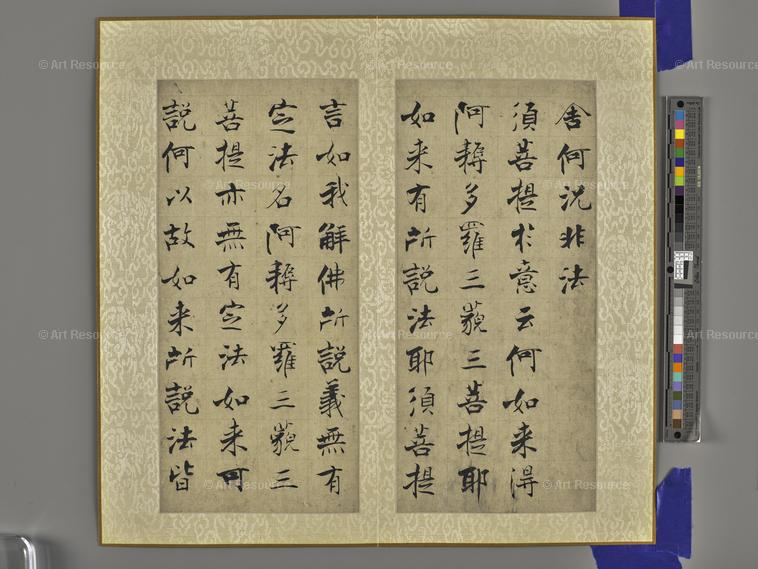 舍何況非法
須菩提於意云何如来得
阿耨多羅三藐三菩提耶
如来有所説法耶須菩提
言如我解佛所説義無有
定法名阿耨多羅三藐三
菩提亦無有定法如来可
説何以故如来所説法皆
© Art Resource
© Art Resource
© Art Resource
© Art Resource
© Art Resource
© Art Resource
© Art Resource
© Art Resource
© Art Resource
© Art Resource